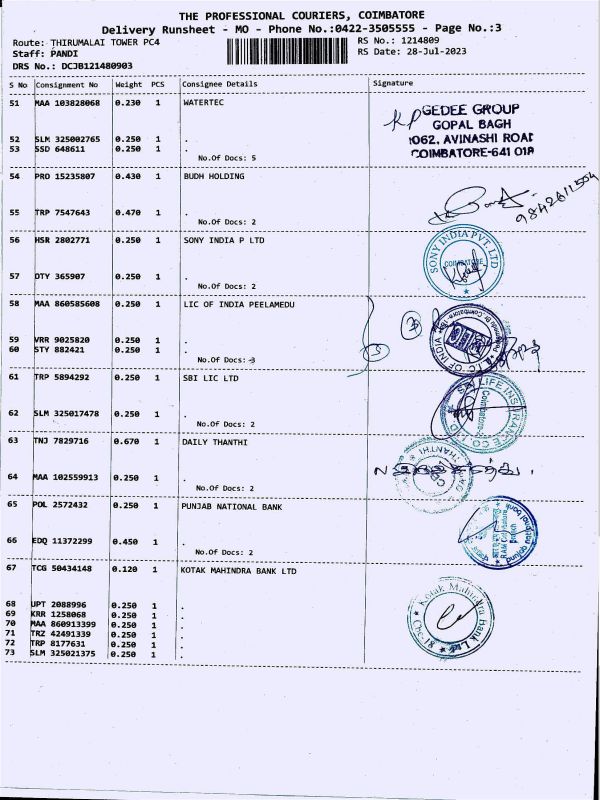 THE PROFESSIONAL COURIERS, COIMBATORE
Delivery Runsheet - MO - Phone No.:0422-3505555 - Page No.:3
Route: THIRUMALAI TOWER PC4 RS No.: 1214809
Staff: PANDI RS Date: 28-Jul-2023
DRS No.: DCJB121480903
S No Consignment No Weight PCS Consignee Details Signature
51 MAA 103828068 0.230 1 WATERTEC
KP GEDEE GROUP
GOPAL BAGH
1062, AVINASHI ROAD
COIMBATORE-641 018
52 SLM 325002765 0.250 1 .
53 SSD 648611 0.250 1 .
No.Of Docs: 5
54 PRO 15235807 0.430 1 BUDH HOLDING
9842611504
55 TRP 7547643 0.470 1 .
No.Of Docs: 2
56 HSR 2802771 0.250 1 SONY INDIA P LTD
SONY INDIA PVT. LTD
COIMBATORE
57 DTY 365907 0.250 1 .
No.Of Docs: 2
58 MAA 860585608 0.250 1 LIC OF INDIA PEELAMEDU
59 VRR 9025820 0.250 1 .
60 STY 882421 0.250 1 .
No.Of Docs: 3
61 TRP 5894292 0.250 1 SBI LIC LTD
SBI LIFE INSURANCE CO. LTD
Coimbatore
62 SLM 325017478 0.250 1 .
No.Of Docs: 2
63 TNJ 7829716 0.670 1 DAILY THANTHI
64 MAA 102559913 0.250 1 .
No.Of Docs: 2
65 POL 2572432 0.250 1 PUNJAB NATIONAL BANK
punjab national bank
66 EDQ 11372299 0.450 1 .
No.Of Docs: 2
67 TCG 50434148 0.120 1 KOTAK MAHINDRA BANK LTD
Kotak Mahindra Bank Ltd
68 UPT 2088996 0.250 1 .
69 KRR 1258068 0.250 1 .
70 MAA 860913399 0.250 1 .
71 TRZ 42491339 0.250 1 .
72 TRP 8177631 0.250 1 .
73 SLM 325021375 0.250 1 .